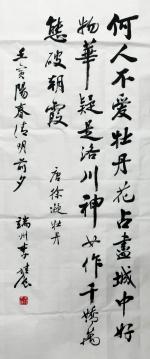 何人不爱牡丹花占盡城中好
物華疑是洛川神女作千嬌萬
態破朝霞
唐徐凝牡丹
壬寅陽春清明前夕
端州李